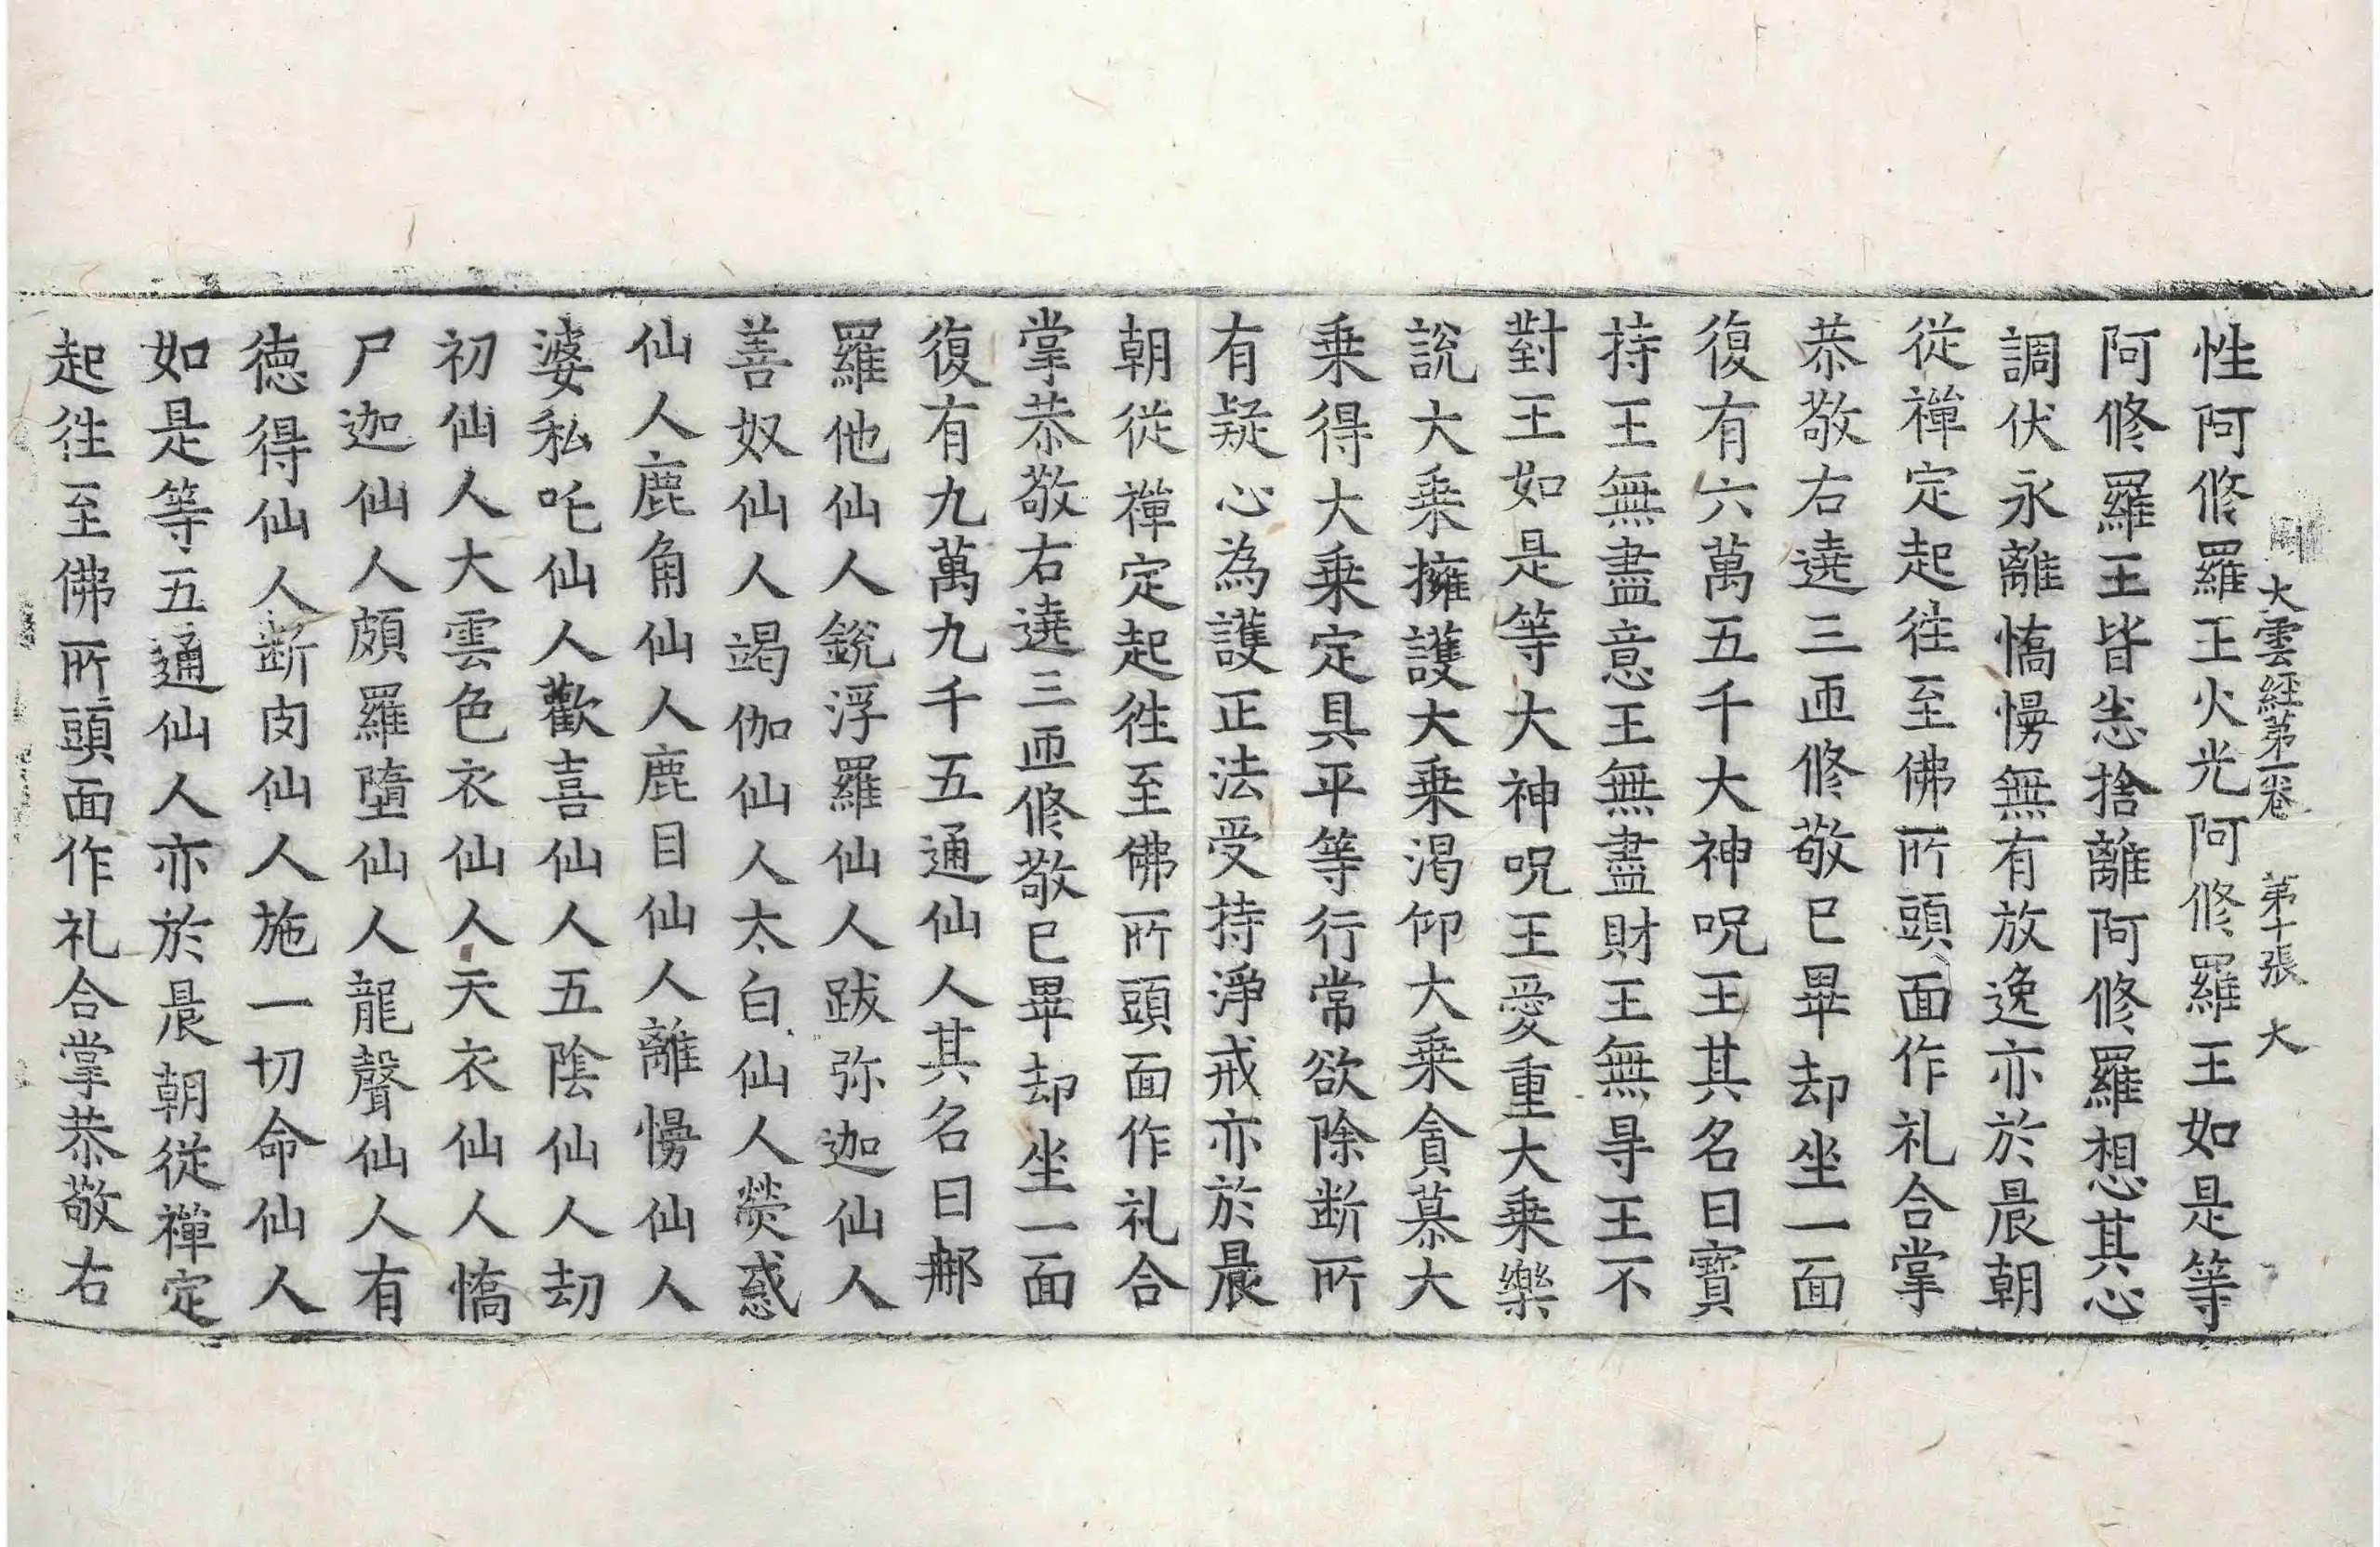 大雲經第一卷 第十張 大
性阿修羅王火光阿修羅王如是等
阿修羅王皆悉捨離阿修羅想其心
調伏永離憍慢無有放逸亦於晨朝
從禪定起往至佛所頭面作礼合掌
恭敬右遶三匝修敬已畢却坐一面
復有六萬五千大神呪王其名曰寶
持王無盡意王無盡財王無㝵王不
對王如是等大神呪王愛重大乗樂
說大乗擁護大乗渴仰大乗貪慕大
乗得大乗定具平等行常欲除断所
有疑心為護正法受持淨戒亦於晨
朝從禪定起往至佛所頭面作礼合
掌恭敬右遶三匝修敬已畢却坐一面
復有九萬九千五通仙人其名曰郍
羅他仙人銳浮羅仙人跋弥迦仙人
善奴仙人竭伽仙人太白仙人熒惑
仙人鹿角仙人鹿目仙人離慢仙人
婆私吒仙人歡喜仙人五陰仙人劫
初仙人大雲色衣仙人天衣仙人憍
尸迦仙人頗羅墮仙人龍聲仙人有
德得仙人断肉仙人施一切命仙人
如是等五通仙人亦於晨朝從禪定
起往至佛所頭面作礼合掌恭敬右